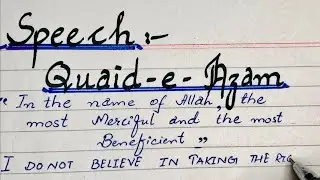 Speech:-
Quaid-e-Azam
" In the name of Allah, the
most Merciful and the most
Beneficient "
I DO NOT BELIEVE IN TAKING THE